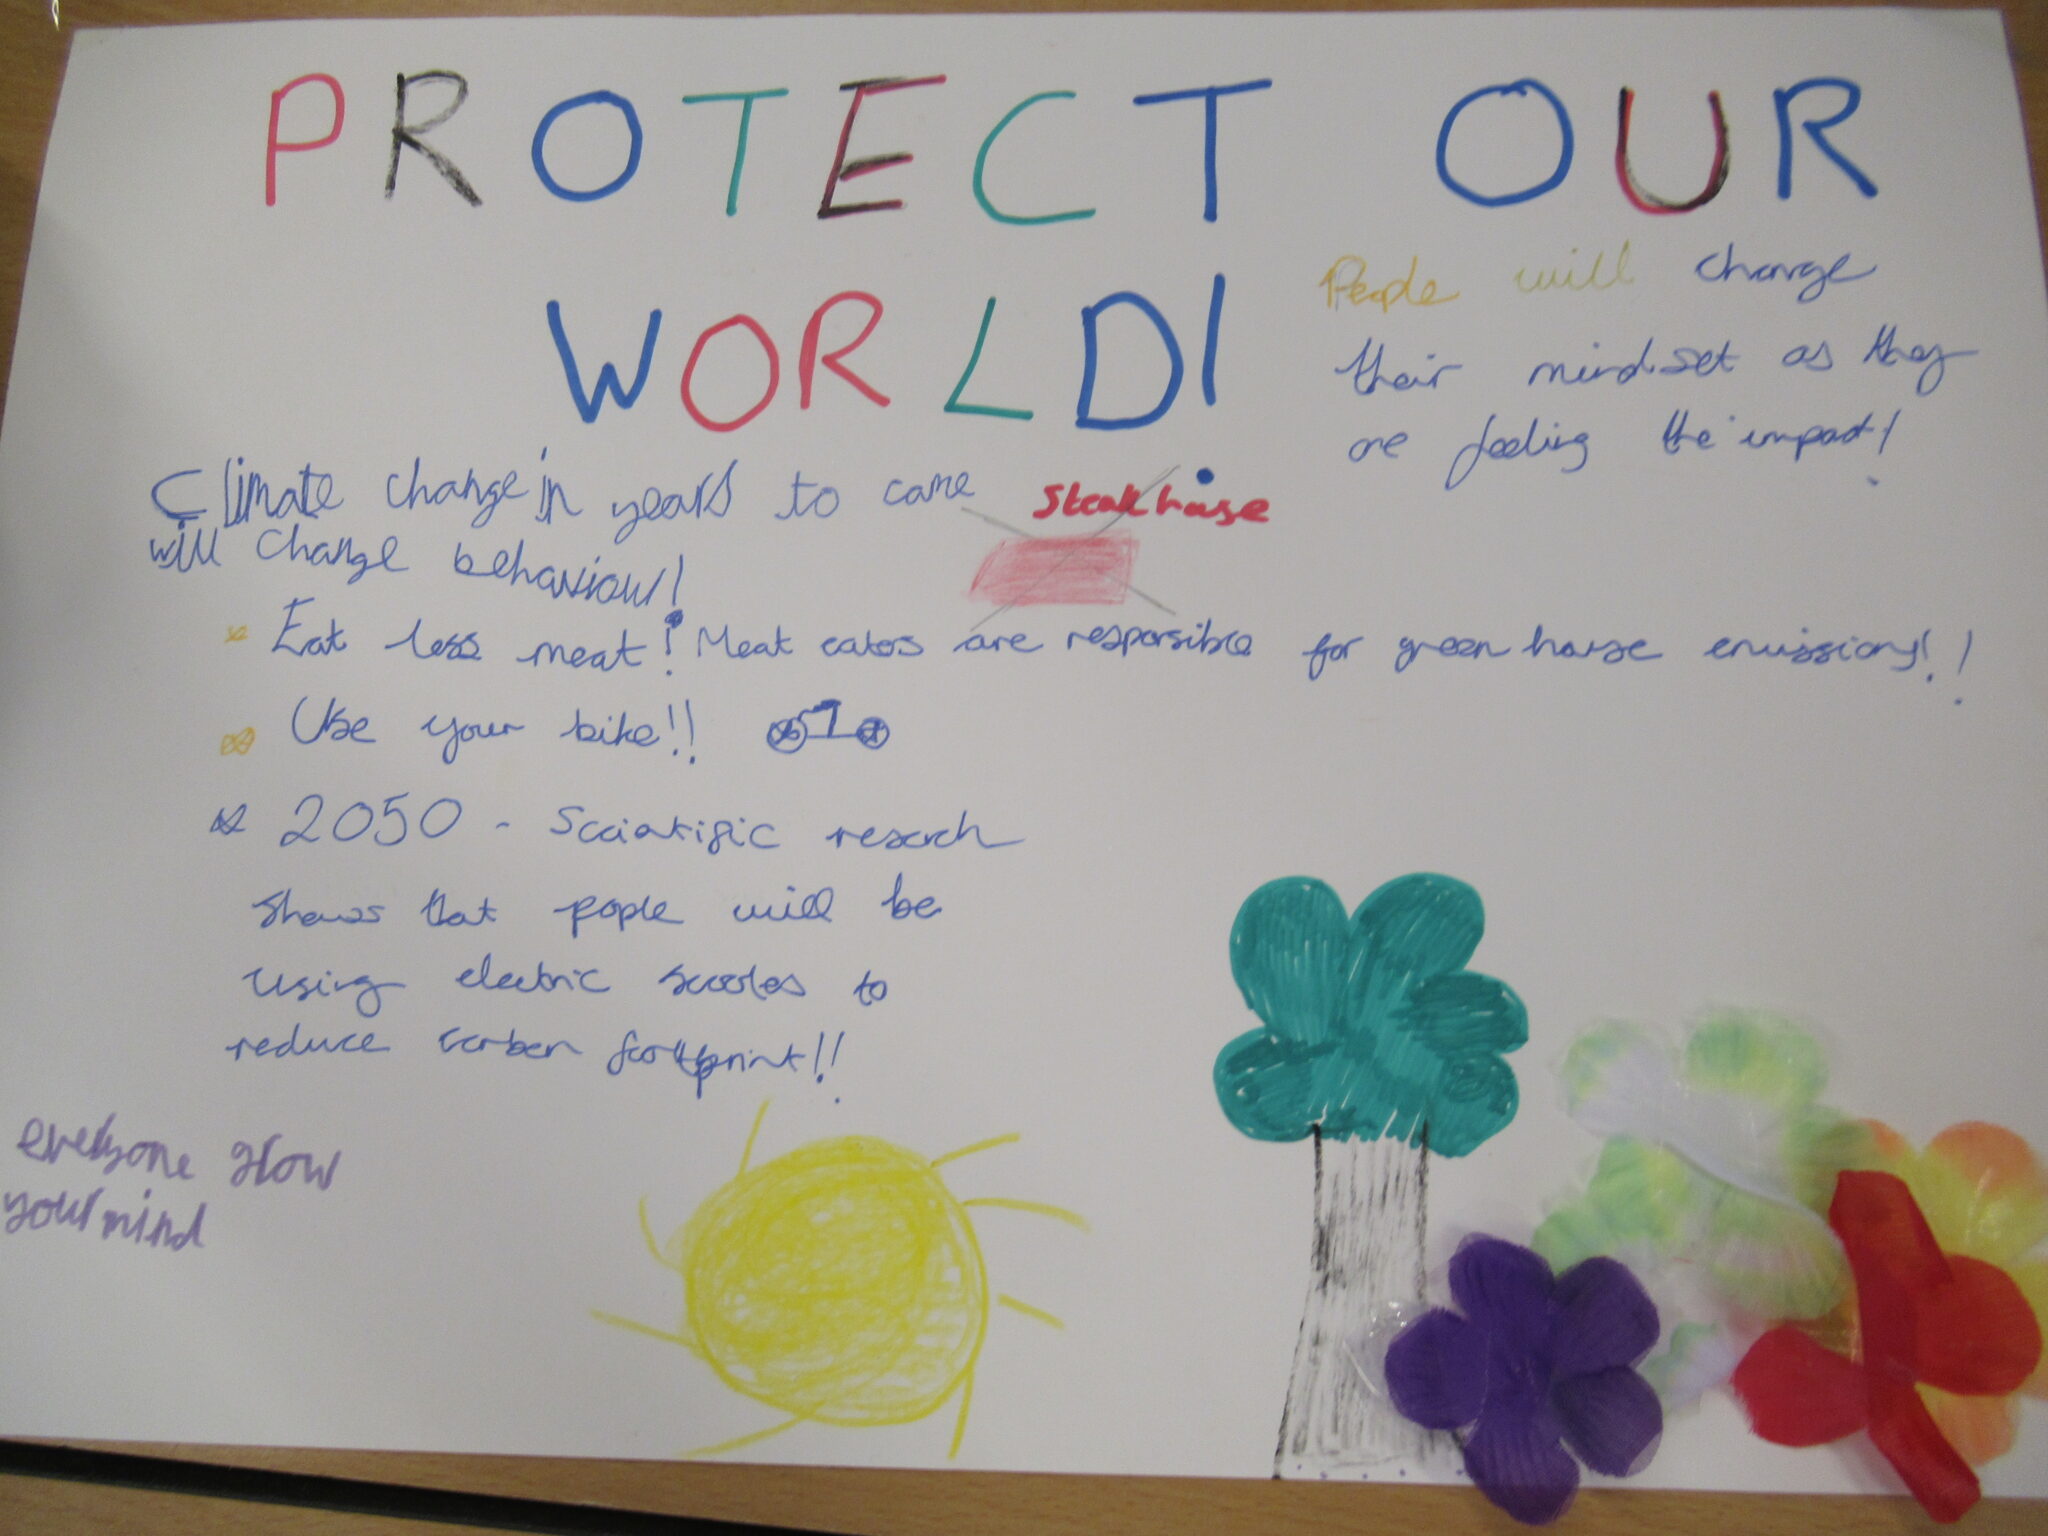 PROTECT OUR
WORLD!
People will change
their mindset as they
are feeling the impact!
Climate change in years to come
will change behaviour!
Steak house
Eat less meat! Meat eaters are responsible for green house emissions!!
Use your bike!!
2050 - Scientific research
shows that people will be
using electric scooters to
reduce carbon footprint!!
everyone grow
your mind